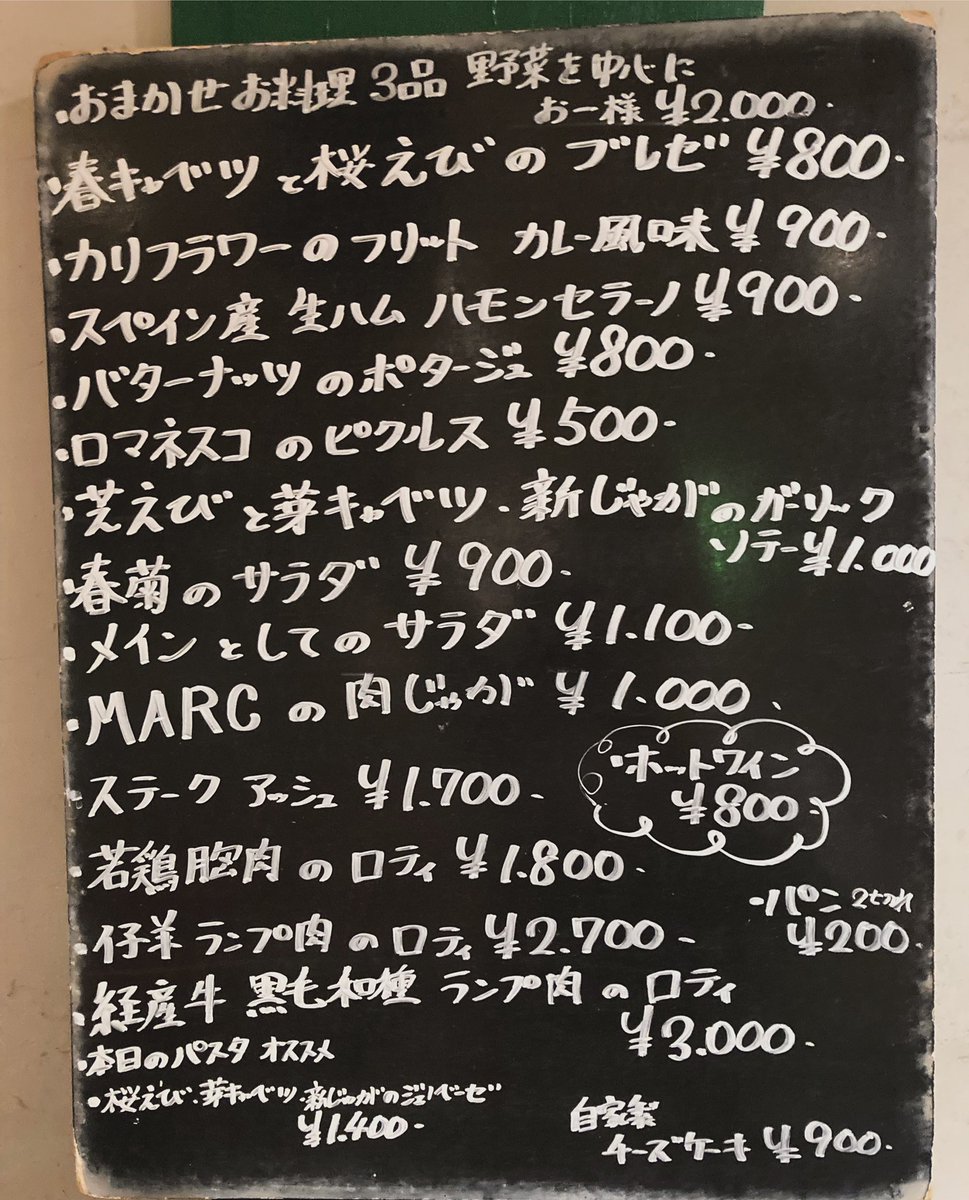 ・おまかせお料理 3品 野菜を中心に
お一様 ¥2.000-
・春キャベツと桜えびのブレゼ ¥800-
・カリフラワーのフリット カレー風味 ¥900-
・スペイン産 生ハム ハモンセラーノ ¥900-
・バターナッツのポタージュ ¥800-
・ロマネスコのピクルス ¥500-
・芝えびと芽キャベツ・新じゃがのガーリック
ソテー ¥1.000
・春菊のサラダ ¥900-
・メインとしてのサラダ ¥1.100-
・MARCの肉じゃが ¥1.000-
・ホットワイン
¥800
・ステークアッシュ ¥1.700-
・若鶏胸肉のロティ ¥1.800-
・パン 2切れ
¥200-
・仔羊ランプ肉のロティ ¥2.700-
・経産牛 黒毛和種 ランプ肉のロティ
¥3.000-
・本日のパスタ オススメ
・桜えび・芽キャベツ・新じゃがのジェノベーゼ
¥1.400-
自家製
チーズケーキ ¥900-